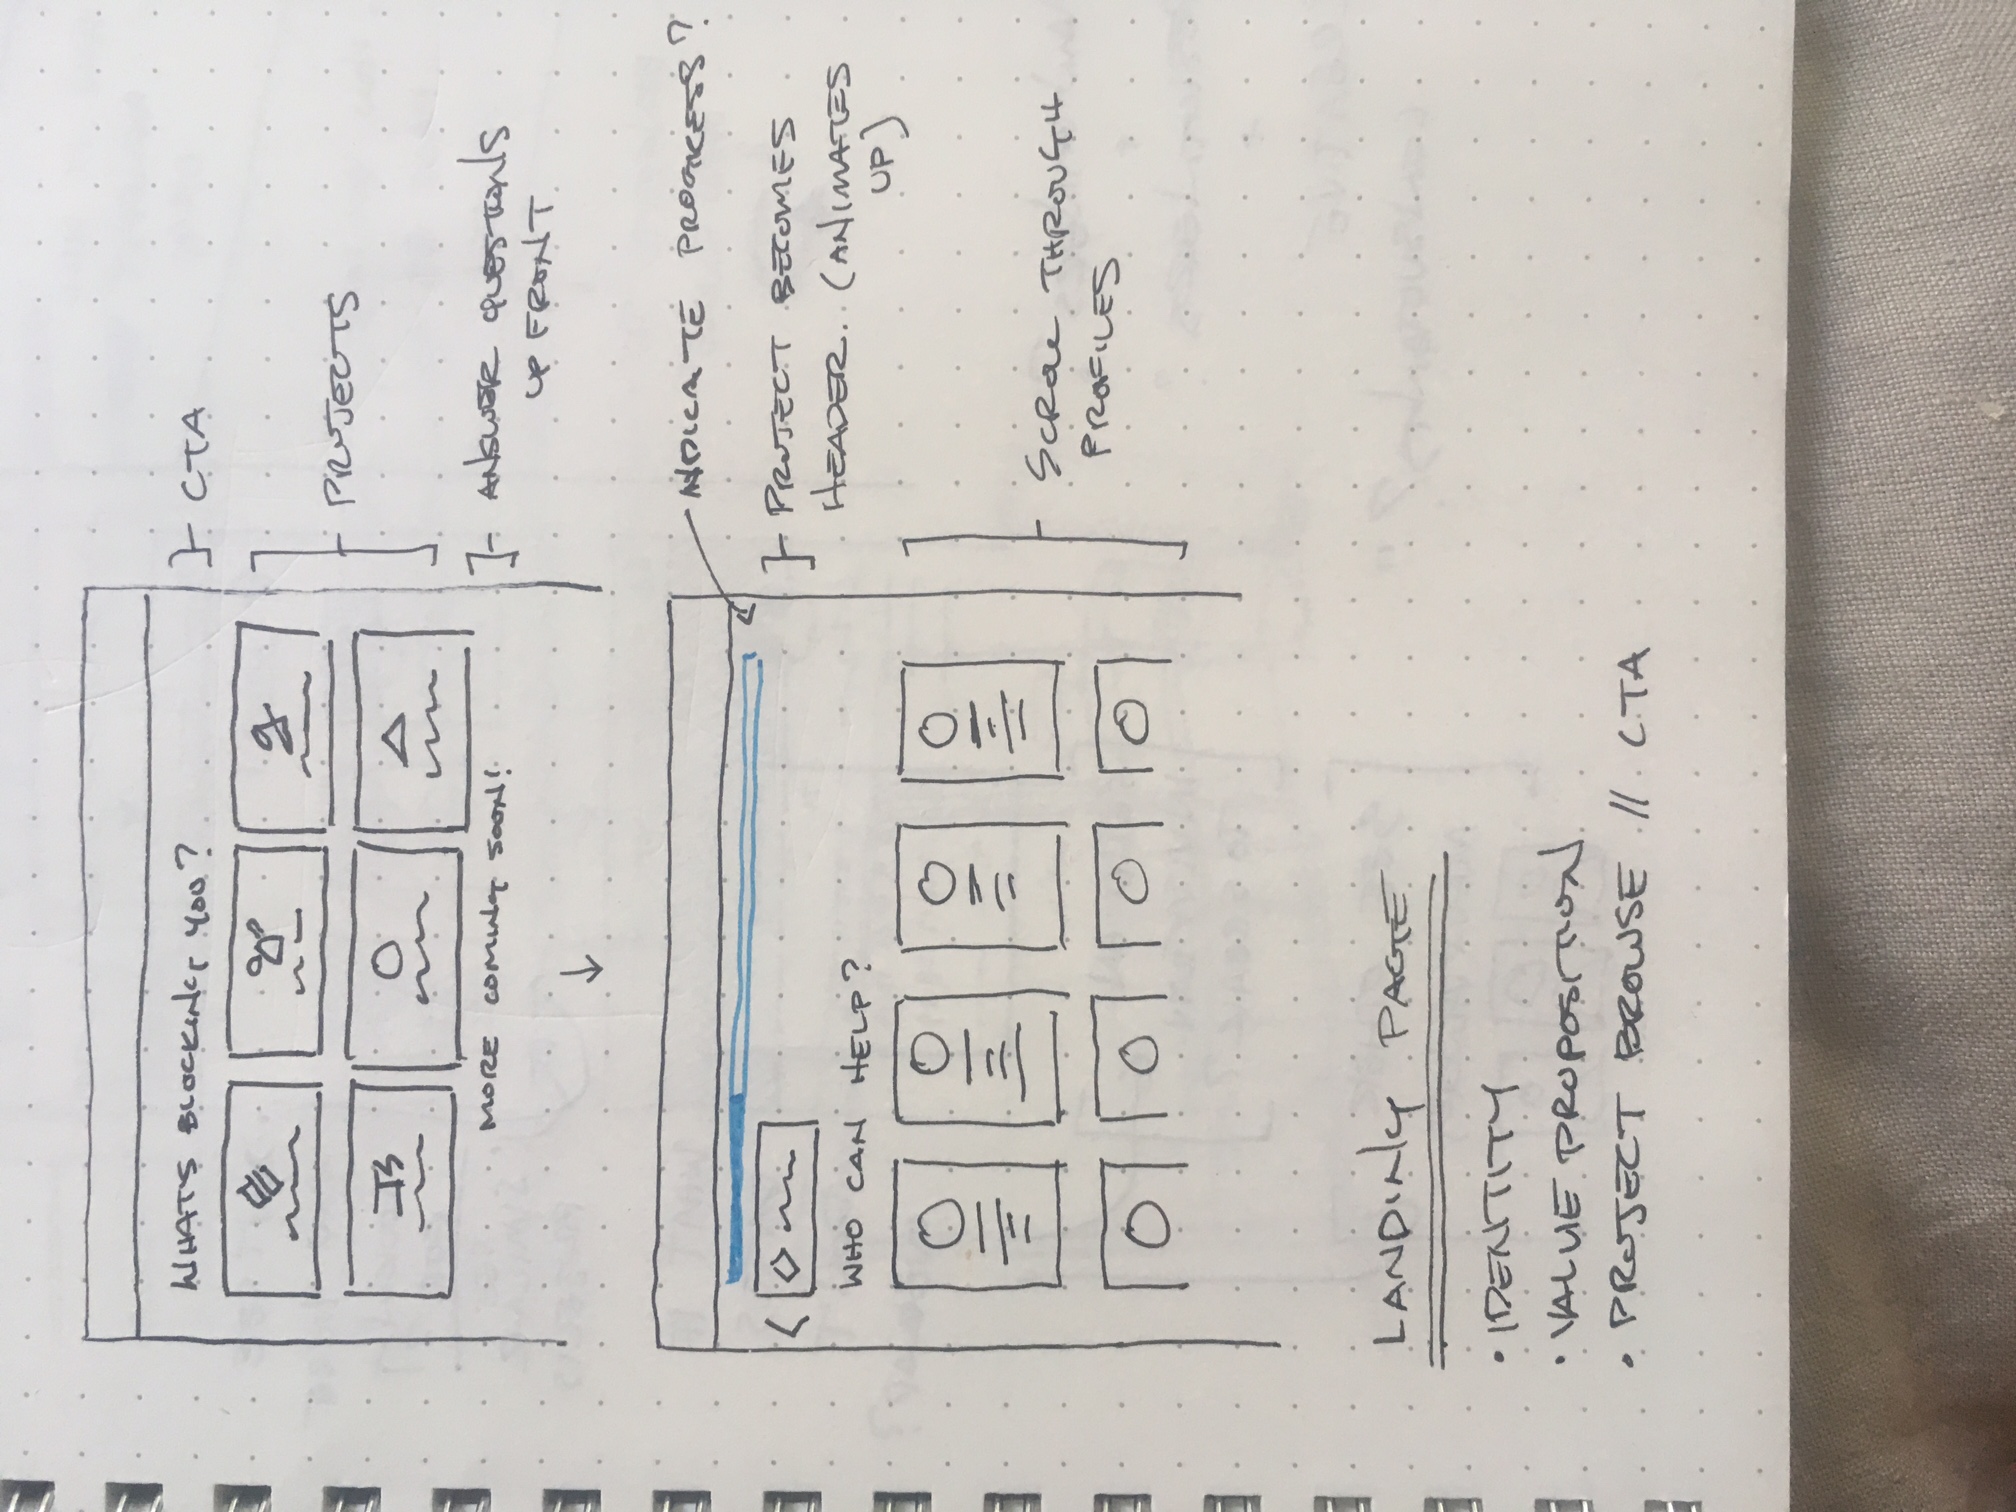 WHAT'S BLOCKING YOU?
CTA
PROJECTS
JS
MORE COMING SOON!
ANSWER QUESTIONS
UP FRONT
INDICATE PROGRESS?
PROJECT BECOMES
HEADER. (ANIMATES
UP)
WHO CAN HELP?
SCROLL THROUGH
PROFILES
LANDING PAGE
• IDENTITY
• VALUE PROPOSITION
• PROJECT BROWSE // CTA